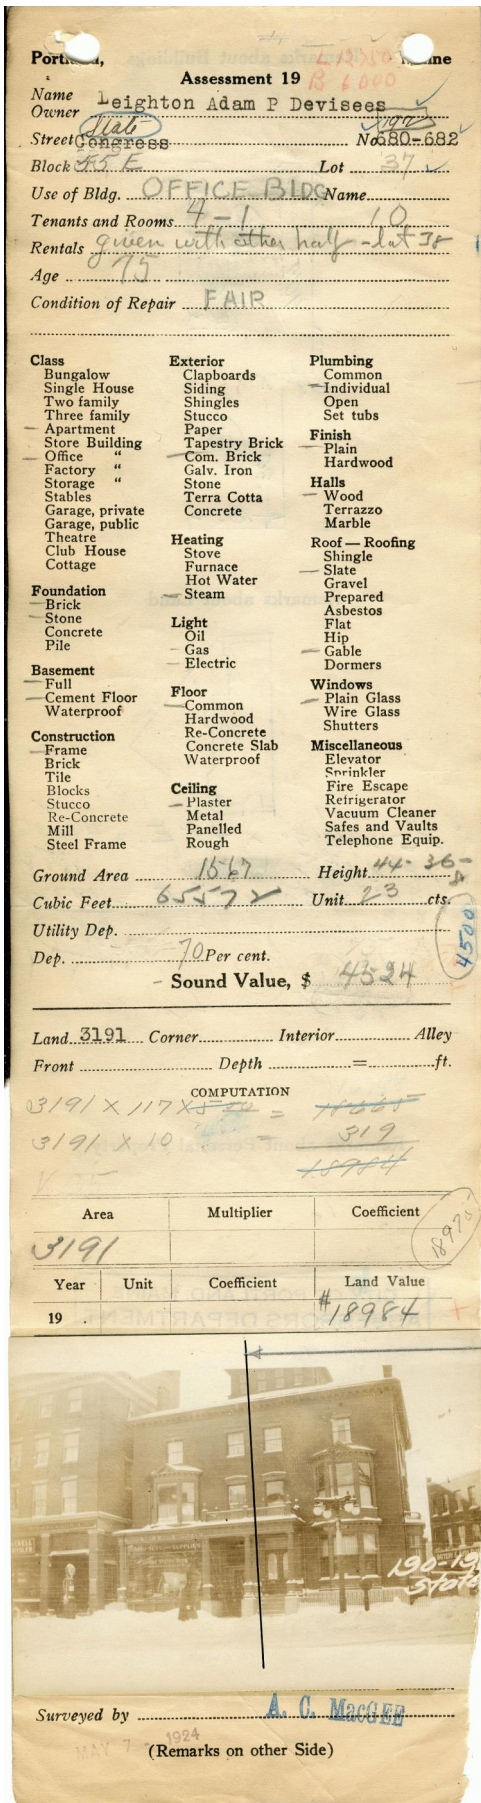 Portland, Maine
L 12350
B 6000
Assessment 19
Name
Owner Leighton Adam P Devisees
State
Street Congress No 680-682
Block 55 E Lot 37
Use of Bldg. OFFICE BLDG Name
Tenants and Rooms 4-1 10
Rentals given with other half - lot 38
Age 75
Condition of Repair FAIR
Class
Bungalow
Single House
Two family
Three family
— Apartment
Store Building
— Office "
Factory "
Storage "
Stables
Garage, private
Garage, public
Theatre
Club House
Cottage
Foundation
— Brick
— Stone
Concrete
Pile
Basement
— Full
— Cement Floor
Waterproof
Construction
— Frame
Brick
Tile
Blocks
Stucco
Re-Concrete
Mill
Steel Frame
Exterior
Clapboards
Siding
Shingles
Stucco
Paper
Tapestry Brick
— Com. Brick
Galv. Iron
Stone
Terra Cotta
Concrete
Heating
Stove
Furnace
Hot Water
— Steam
Light
Oil
— Gas
— Electric
Floor
— Common
Hardwood
Re-Concrete
Concrete Slab
Waterproof
Ceiling
— Plaster
Metal
Panelled
Rough
Plumbing
Common
— Individual
Open
Set tubs
Finish
— Plain
Hardwood
Halls
— Wood
Terrazzo
Marble
Roof — Roofing
Shingle
— Slate
Gravel
Prepared
Asbestos
Flat
Hip
— Gable
Dormers
Windows
— Plain Glass
Wire Glass
Shutters
Miscellaneous
Elevator
Sprinkler
Fire Escape
Refrigerator
Vacuum Cleaner
Safes and Vaults
Telephone Equip.
Ground Area 1567 Height 44- 36-
Cubic Feet 65572 Unit 23 cts.
Utility Dep.
4500
Dep. 70 Per cent.
— Sound Value, $ 4524
Land 3191 Corner Interior Alley
Front Depth = ft.
COMPUTATION
3191 X 117 X 5 00 = 18665
3191 X 10 = 319
18984
Area Multiplier Coefficient
3191
18975
Year Unit Coefficient Land Value
19 . # 18984 +
190-19
State
Surveyed by A. C. MacGEE
MAY 7 - 1924
(Remarks on other Side)